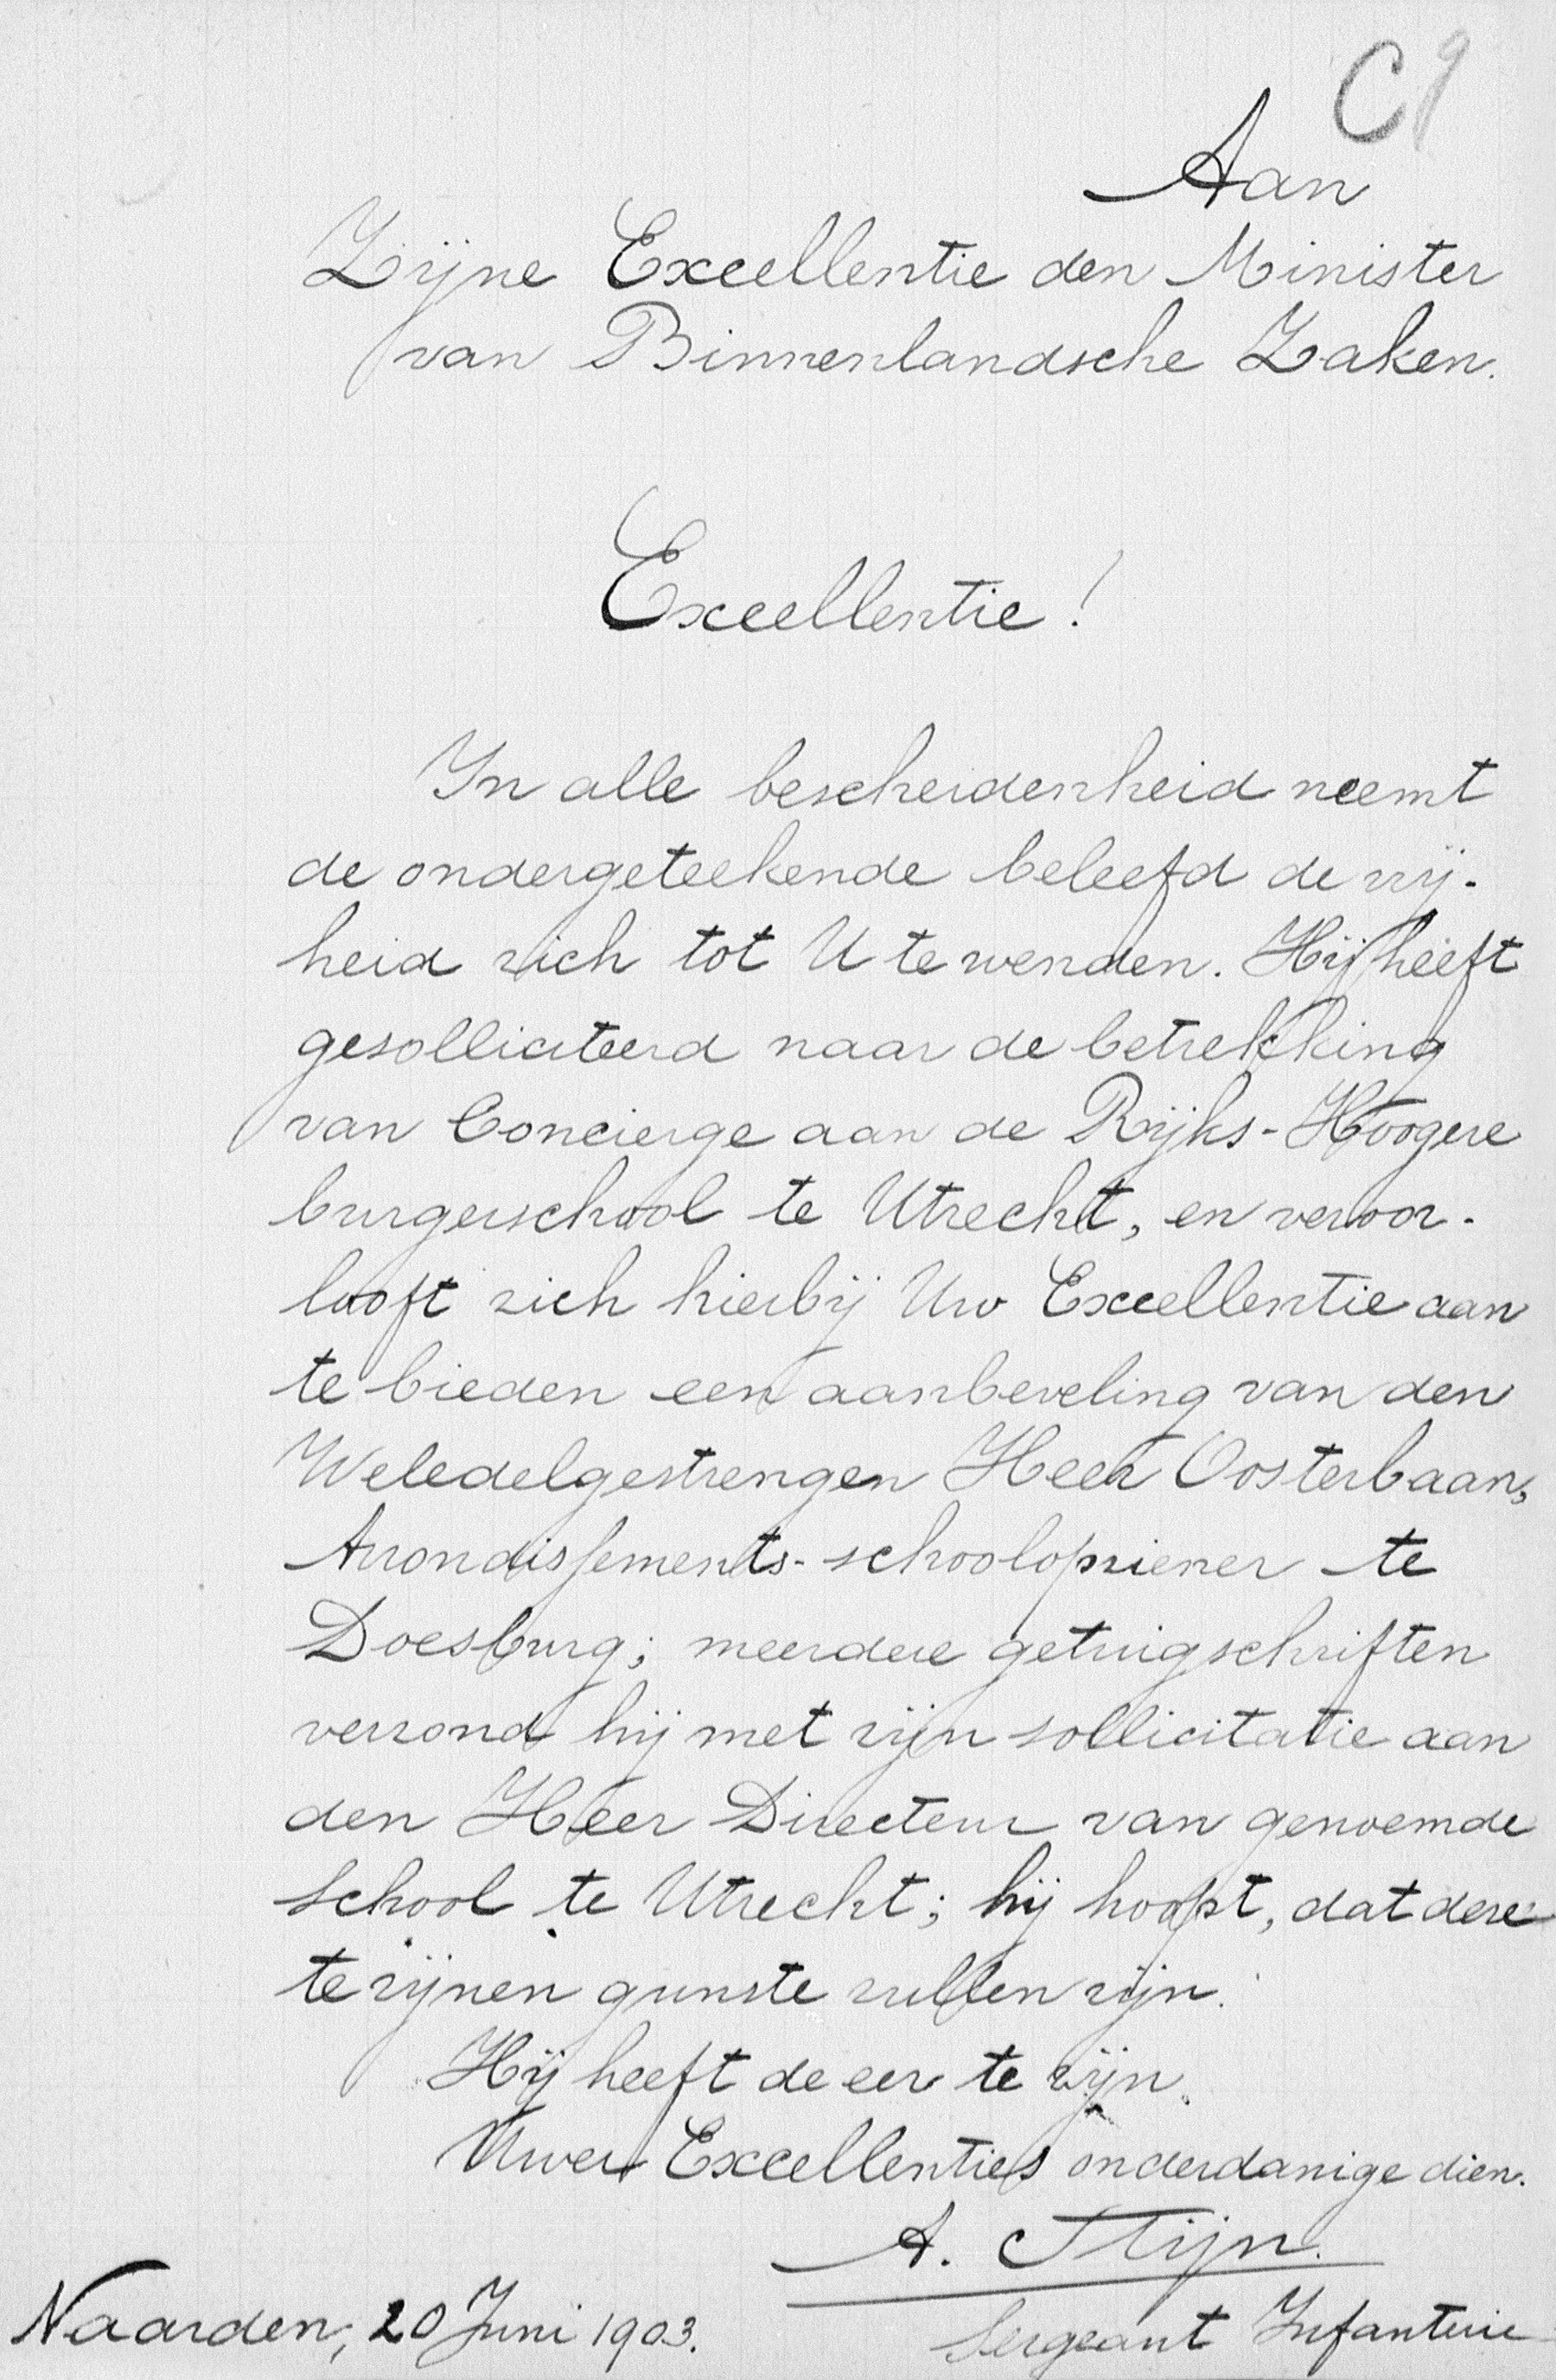 C9
Aan
Zijne Excellentie den Minister
van Binnenlandsche Zaken.
Excellentie!
In alle bescheidenheid neemt
de ondergeteekende beleefd de vrij-
heid zich tot U te wenden. Hij heeft
gesolliciteerd naar de betrekking
van Concierge aan de Rijks-Hoogere
burgerschool te Utrecht, en veroor-
looft zich hierbij Uw Excellentie aan
te bieden een aanbeveling van den
Weledelgestrengen Heer Oosterbaan,
Arrondissements-schoolopziener te
Doesburg; meerdere getuigschriften
verzond hij met zijn sollicitatie aan
den Heer Directeur van genoemde
school te Utrecht; hij hoopt, dat deze
te zijnen gunste zullen zijn.
Hij heeft de eer te zijn,
Uwer Excellenties onderdanige dien.
A. Stijn.
Sergeant Infanterie
Naarden, 20 Juni 1903.